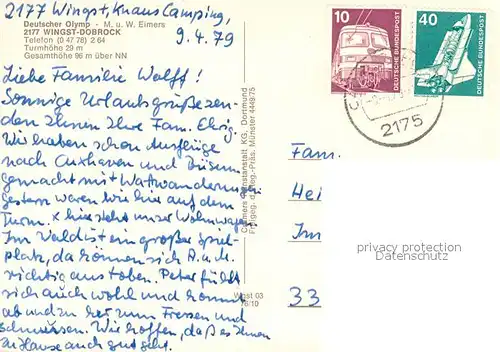 2177 Wingst, Knaus Camping,
9.4.79
Deutscher Olymp - M. u. W. Eimers
2177 WINGST-DOBROCK
Telefon (0 47 78) 2 64
Turmhöhe 29 m
Gesamthöhe 96 m über NN
Liebe Familie Wolff!
Sonnige Urlaubsgrüße sen-
den Ihnen Ihre Fam.
Wir haben schon Ausflüge
nach Cuxhaven und Büsum
gemacht mit Wattwanderung
gestern waren wir hier auf dem
Turm. x hier steht unser Wohnwagen
Im Wald ist ein großer Spiel-
platz, da können sich A. u. H.
richtig austoben. Peter fühlt
sich auch wohl und kommt
ab und zu her zum Fressen und
schmusen. Wir hoffen, daß es Ihnen
zu Hause auch gut geht.
Cramers Kunstanstalt KG, Dortmund
Freigeg. d. Reg.-Präs. Münster 4448/75
Wgst 03
10
DEUTSCHE BUNDESPOST
40
DEUTSCHE BUNDESPOST
2175
Fam.
Hei
Im
33
privacy protection
DSGVO Datenschutz